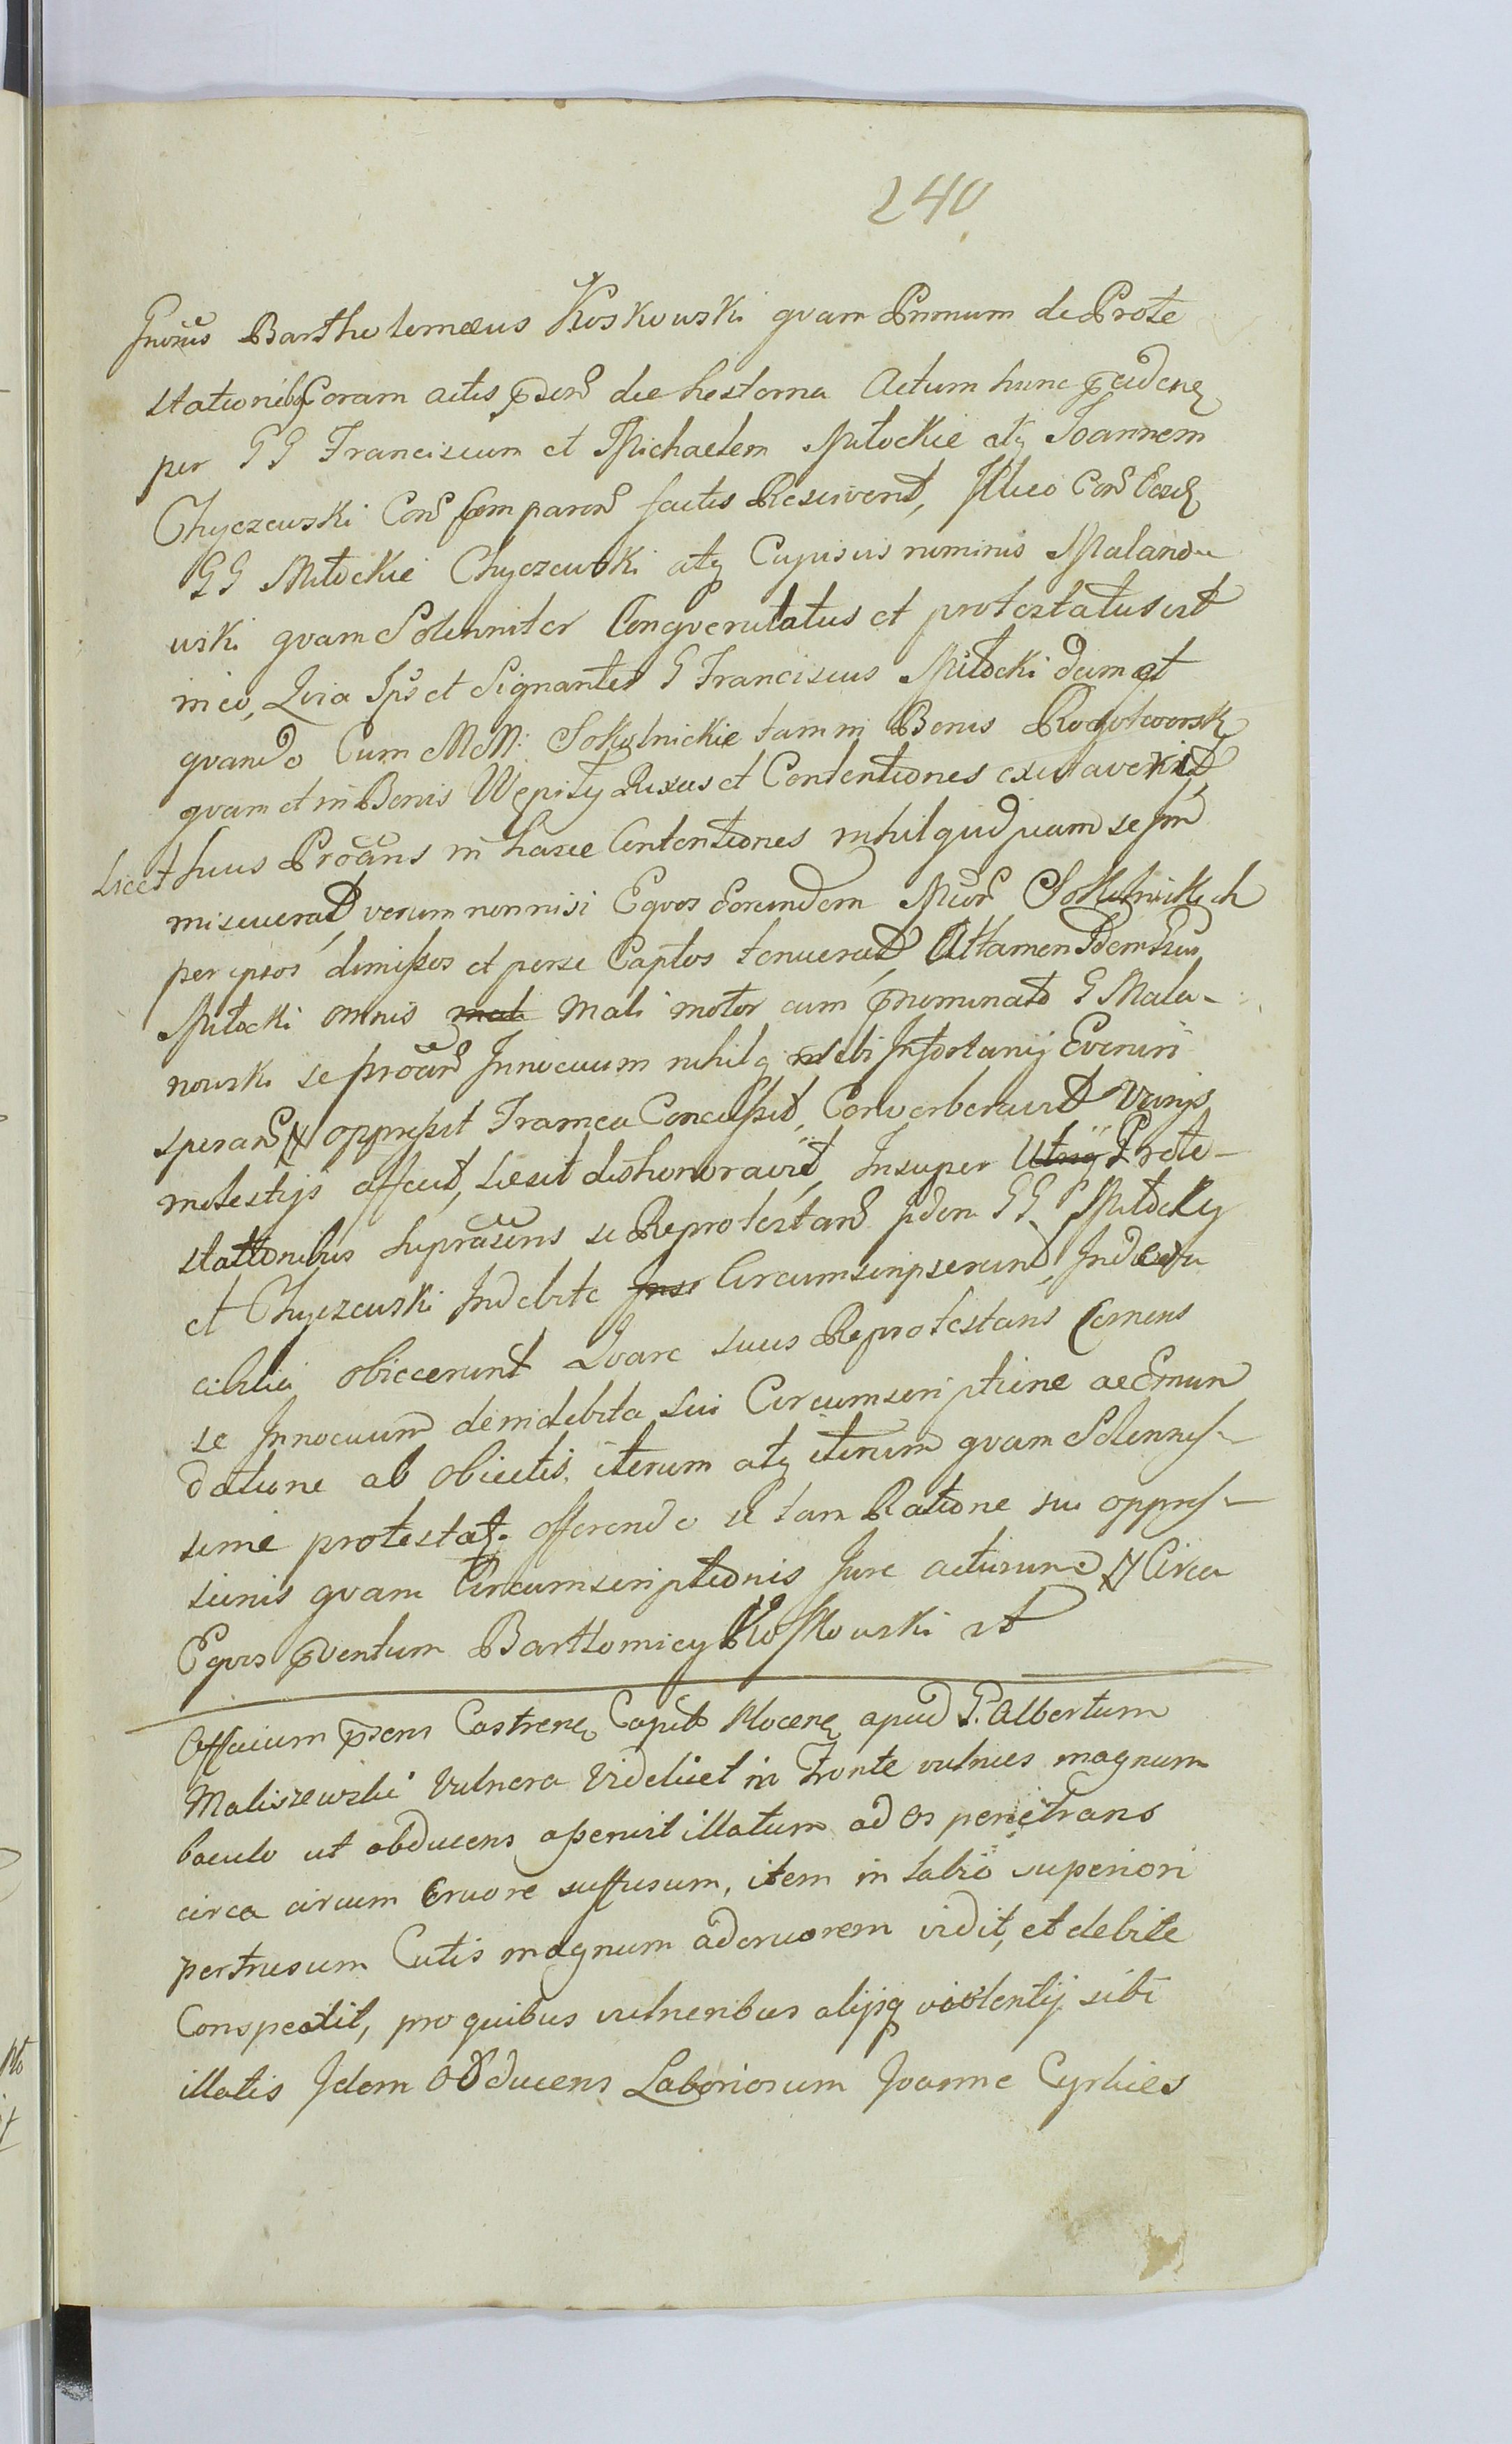 240
Gnosus Bartholemæus Koskowski qvam Primum de Prote
stationibq Coram actis pnsen die hesterna Actum hunc pceden
per GG Franciscum et Michaelem Miłockie atq Joannem
Chyczewski Con Comparen factis Resciverit, Illico Con Eosd
GG Miłockie Chyczewski atq Cupiscis nominis Malano
wski qvam Solenniter Conqverulatus et protestatus est
in eo, Qvia Ips et Signanter G Franciscus Miłocki dum et
qvando Cum MM: Sokolnickie tam in Bonis Rogotworsk
qvam et in Bonis Wępiły Rixas et Contentiones excitaverit
Licet suus Protans in hasce Contentiones nihil quidquam se im
miscuerat, verum nonnisi Eqvos Eorundem MM Sokolnickich
per ipsos dimissos et per se Captos tenuerat Attamen Idem Fran
Miłocki omnis mal Mali motor cum pnominato G Mala-
nowski se protan Innocuum nihilq sibi Infortunij Eveniri
speran oppressit Framea Concussit, Converberavit Varijs
molestijs affecit, Læsit dishonoravit, Insuper Utriq Prote-
stationibus suprascriptis se Reprotestan Idem GG Miłockij
et Chyczewski Indebite Insc Circumscripserunt, Indecta
cihlia obiecerunt Qvare suus Reprotestans Cernens
se Innocuum de indebita sui Circumscriptione ac Emun
datione ab obiectis, iterum atq iterum qvam Solennis-
sime protestat. offerendo se tam Ratione sui oppres-
sionis qvam Circumscriptionis Jure acturum Circa
Eqvos pventum Bartłomiey Koskowski
Officium pnsens Castren Capit Plocen apud G. Albertum
Maliszewski Vulnera Videlicet in Fronte vulnus magnum
baculo ut obducens asseruit illatum ad os penetrans
circa circum Cruore suffusum, item in labio superiori
pertrusum Cutis magnum ad cruorem vidit, et debite
Conspexit, pro quibus vulneribus alijsq violentijs sibi
illatis Idem Obducens Laboriosum Joanne Cyrlies